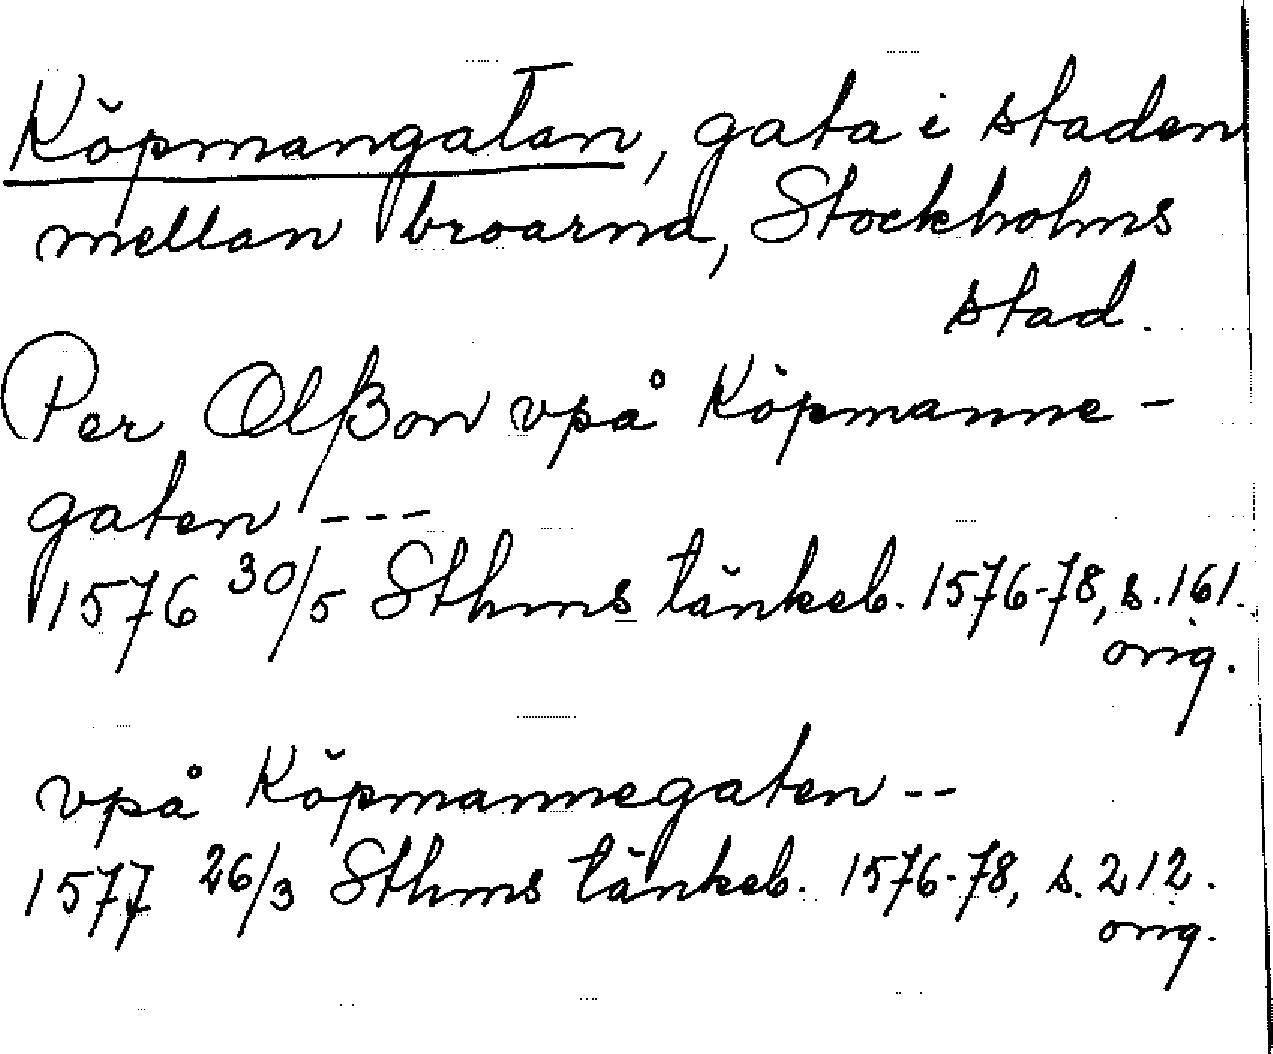 Köpmangatan, gata i staden
mellan broarna, Stockholms
stad.
Per Olßon vpå Köpmanne-
gaten ---
1576 30/5 Sthms tänkeb. 1576-78, s. 161.
orig.
vpå Köpmannegaten --
1577 26/3 Sthms tänkeb. 1576-78, s. 212.
orig.